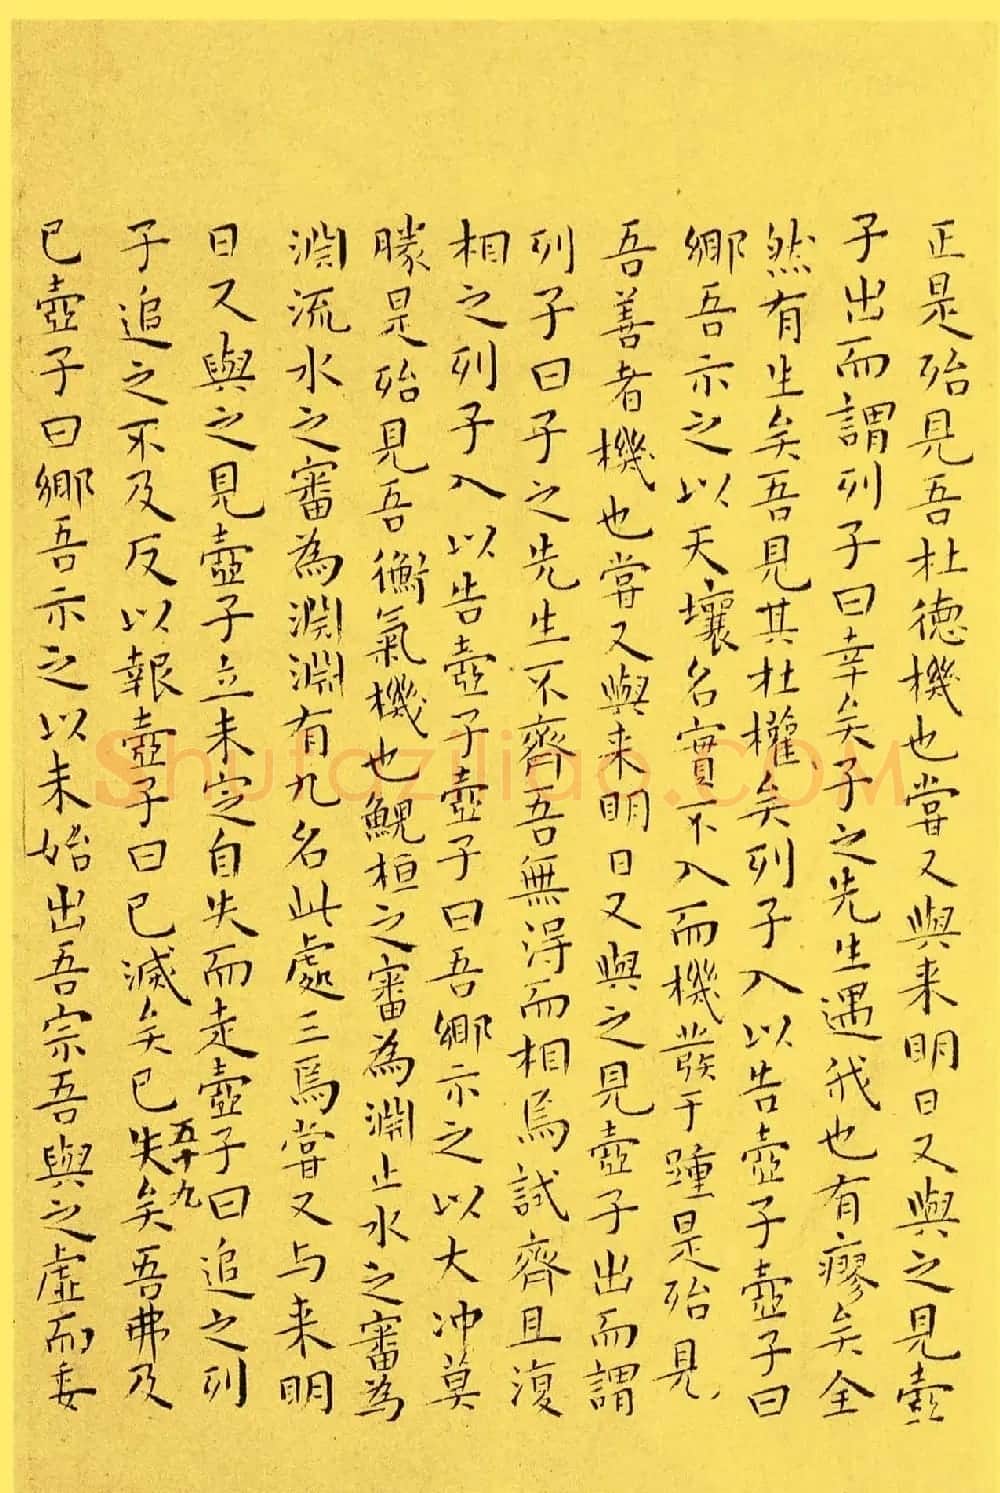 正是殆見吾杜德機也嘗又與来明日又與之見壺
子出而謂列子曰幸矣子之先生遇我也有瘳矣全
然有生矣吾見其杜權矣列子入以告壺子壺子曰
鄉吾示之以天壤名實不入而機發于踵是殆見
吾善者機也嘗又與来明日又與之見壺子出而謂
列子曰子之先生不齊吾無得而相焉試齊且復
相之列子入以告壺子壺子曰吾鄉示之以大冲莫
朕是殆見吾衡氣機也鯢桓之審為淵止水之審為
淵流水之審為淵淵有九名此處三焉嘗又与来明
日又與之見壺子立未定自失而走壺子曰追之列
五十九
子追之不及反以報壺子曰已滅矣已失矣吾弗及
已壺子曰鄉吾示之以未始出吾宗吾與之虛而委
Shufaziliao.COM